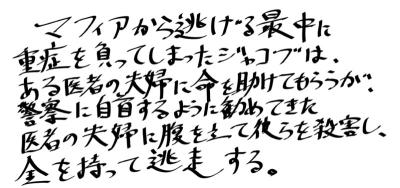 マフィアから逃げる最中に
重症を負ってしまったジャコブは、
ある医者の夫婦に命を助けてもらうが、
警察に自首するように勧めてきた
医者の夫婦に腹を立て彼らを殺害し、
金を持って逃走する。